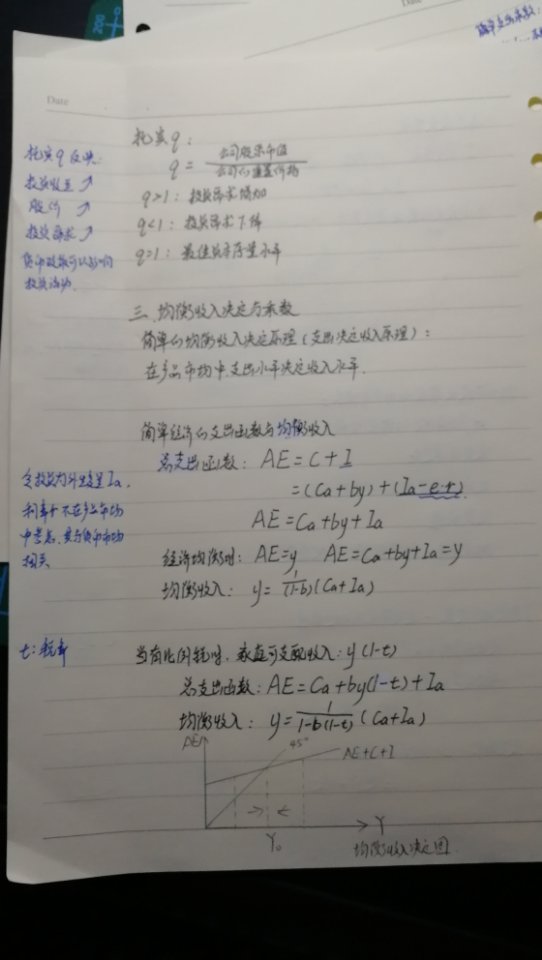 Date
托宾q:
q = 公司股票市值 / 公司的重置价格
q>1: 投资需求增加
q<1: 投资需求下降
q=1: 最佳资本存量水平
托宾q反映:
投资收益↗
股价↗
投资需求↗
货币政策可以影响
投资活动.
三. 均衡收入决定与乘数
简单的均衡收入决定原理(支出决定收入原理):
在产品市场中,支出水平决定收入水平.
简单经济的支出函数与均衡收入
总支出函数: AE=C+I
=(Ca+by)+(Ia-e·r)
AE=Ca+by+Ia
令投资为外生变量Ia,
利率r不在产品市场
中考虑,其与货币市场
相关
经济均衡时: AE=y AE=Ca+by+Ia=y
均衡收入: y= 1/(1-b) (Ca+Ia)
t:税率
当有比例税时, 家庭可支配收入: y(1-t)
总支出函数: AE=Ca+by(1-t)+Ia
均衡收入: y= 1/1-b(1-t) (Ca+Ia)
AE
45°
AE+C+I
Y
Y₀
均衡收入决定图